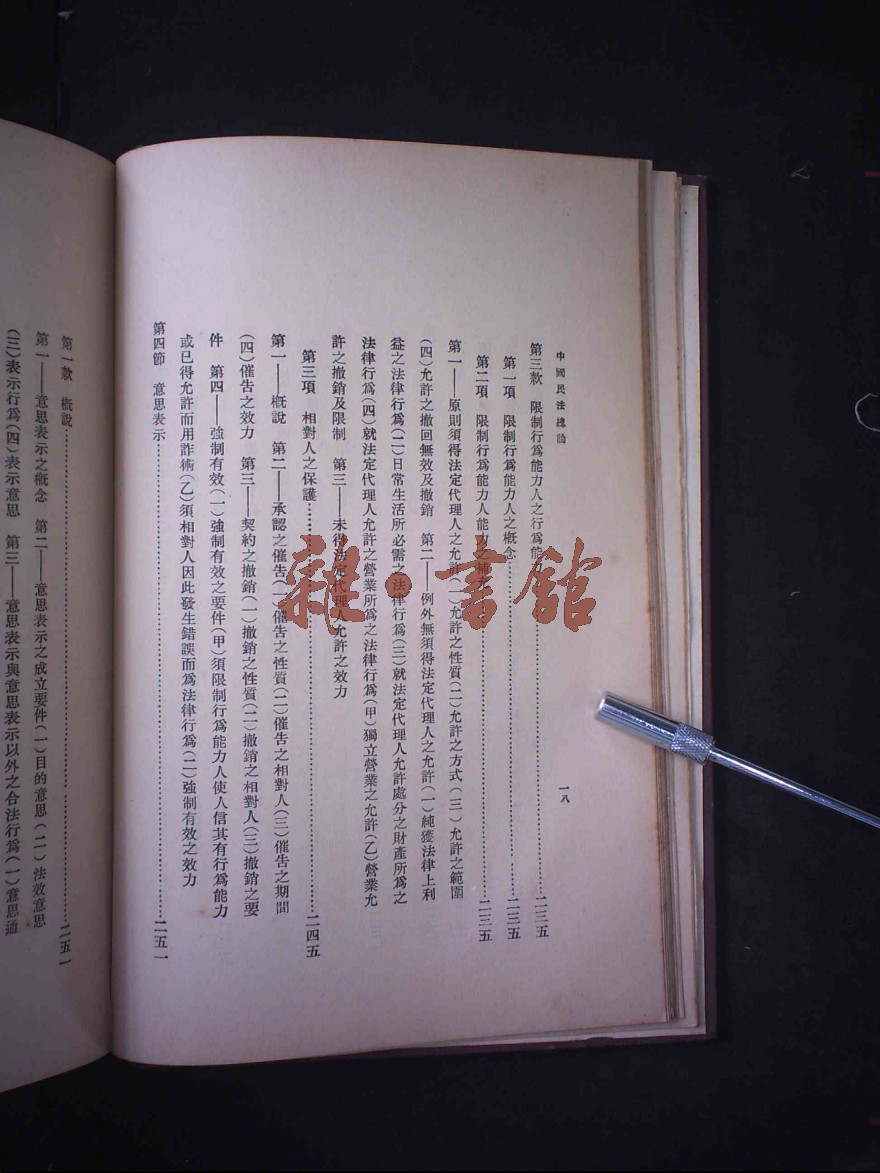 中國民法總論
一八
第三款 限制行爲能力人之行爲能力……二三五
第一項 限制行爲能力人之概念……二三五
第二項 限制行爲能力人能力之補充……二三五
第一——原則須得法定代理人之允許(一)允許之性質(二)允許之方式(三)允許之範圍
(四)允許之撤回無效及撤銷 第二——例外無須得法定代理人之允許(一)純獲法律上利
益之法律行爲(二)日常生活所必需之法律行爲(三)就法定代理人允許處分之財產所爲之
法律行爲(四)就法定代理人允許之營業所爲之法律行爲(甲)獨立營業之允許(乙)營業允
許之撤銷及限制 第三——未得法定代理人允許之效力
第三項 相對人之保護……二四五
第一——概說 第二——承認之催告(一)催告之性質(二)催告之相對人(三)催告之期間
(四)催告之效力 第三——契約之撤銷(一)撤銷之性質(二)撤銷之相對人(三)撤銷之要
件 第四——強制有效(一)強制有效之要件(甲)須限制行爲能力人使人信其有行爲能力
或已得允許而用詐術(乙)須相對人因此發生錯誤而爲法律行爲(二)強制有效之效力
第四節 意思表示……二五一
第一款 概說……二五一
第一——意思表示之概念 第二——意思表示之成立要件(一)目的意思(二)法效意思
(三)表示行爲(四)表示意思 第三——意思表示與意思表示以外之合法行爲(一)意思通
雜·書館